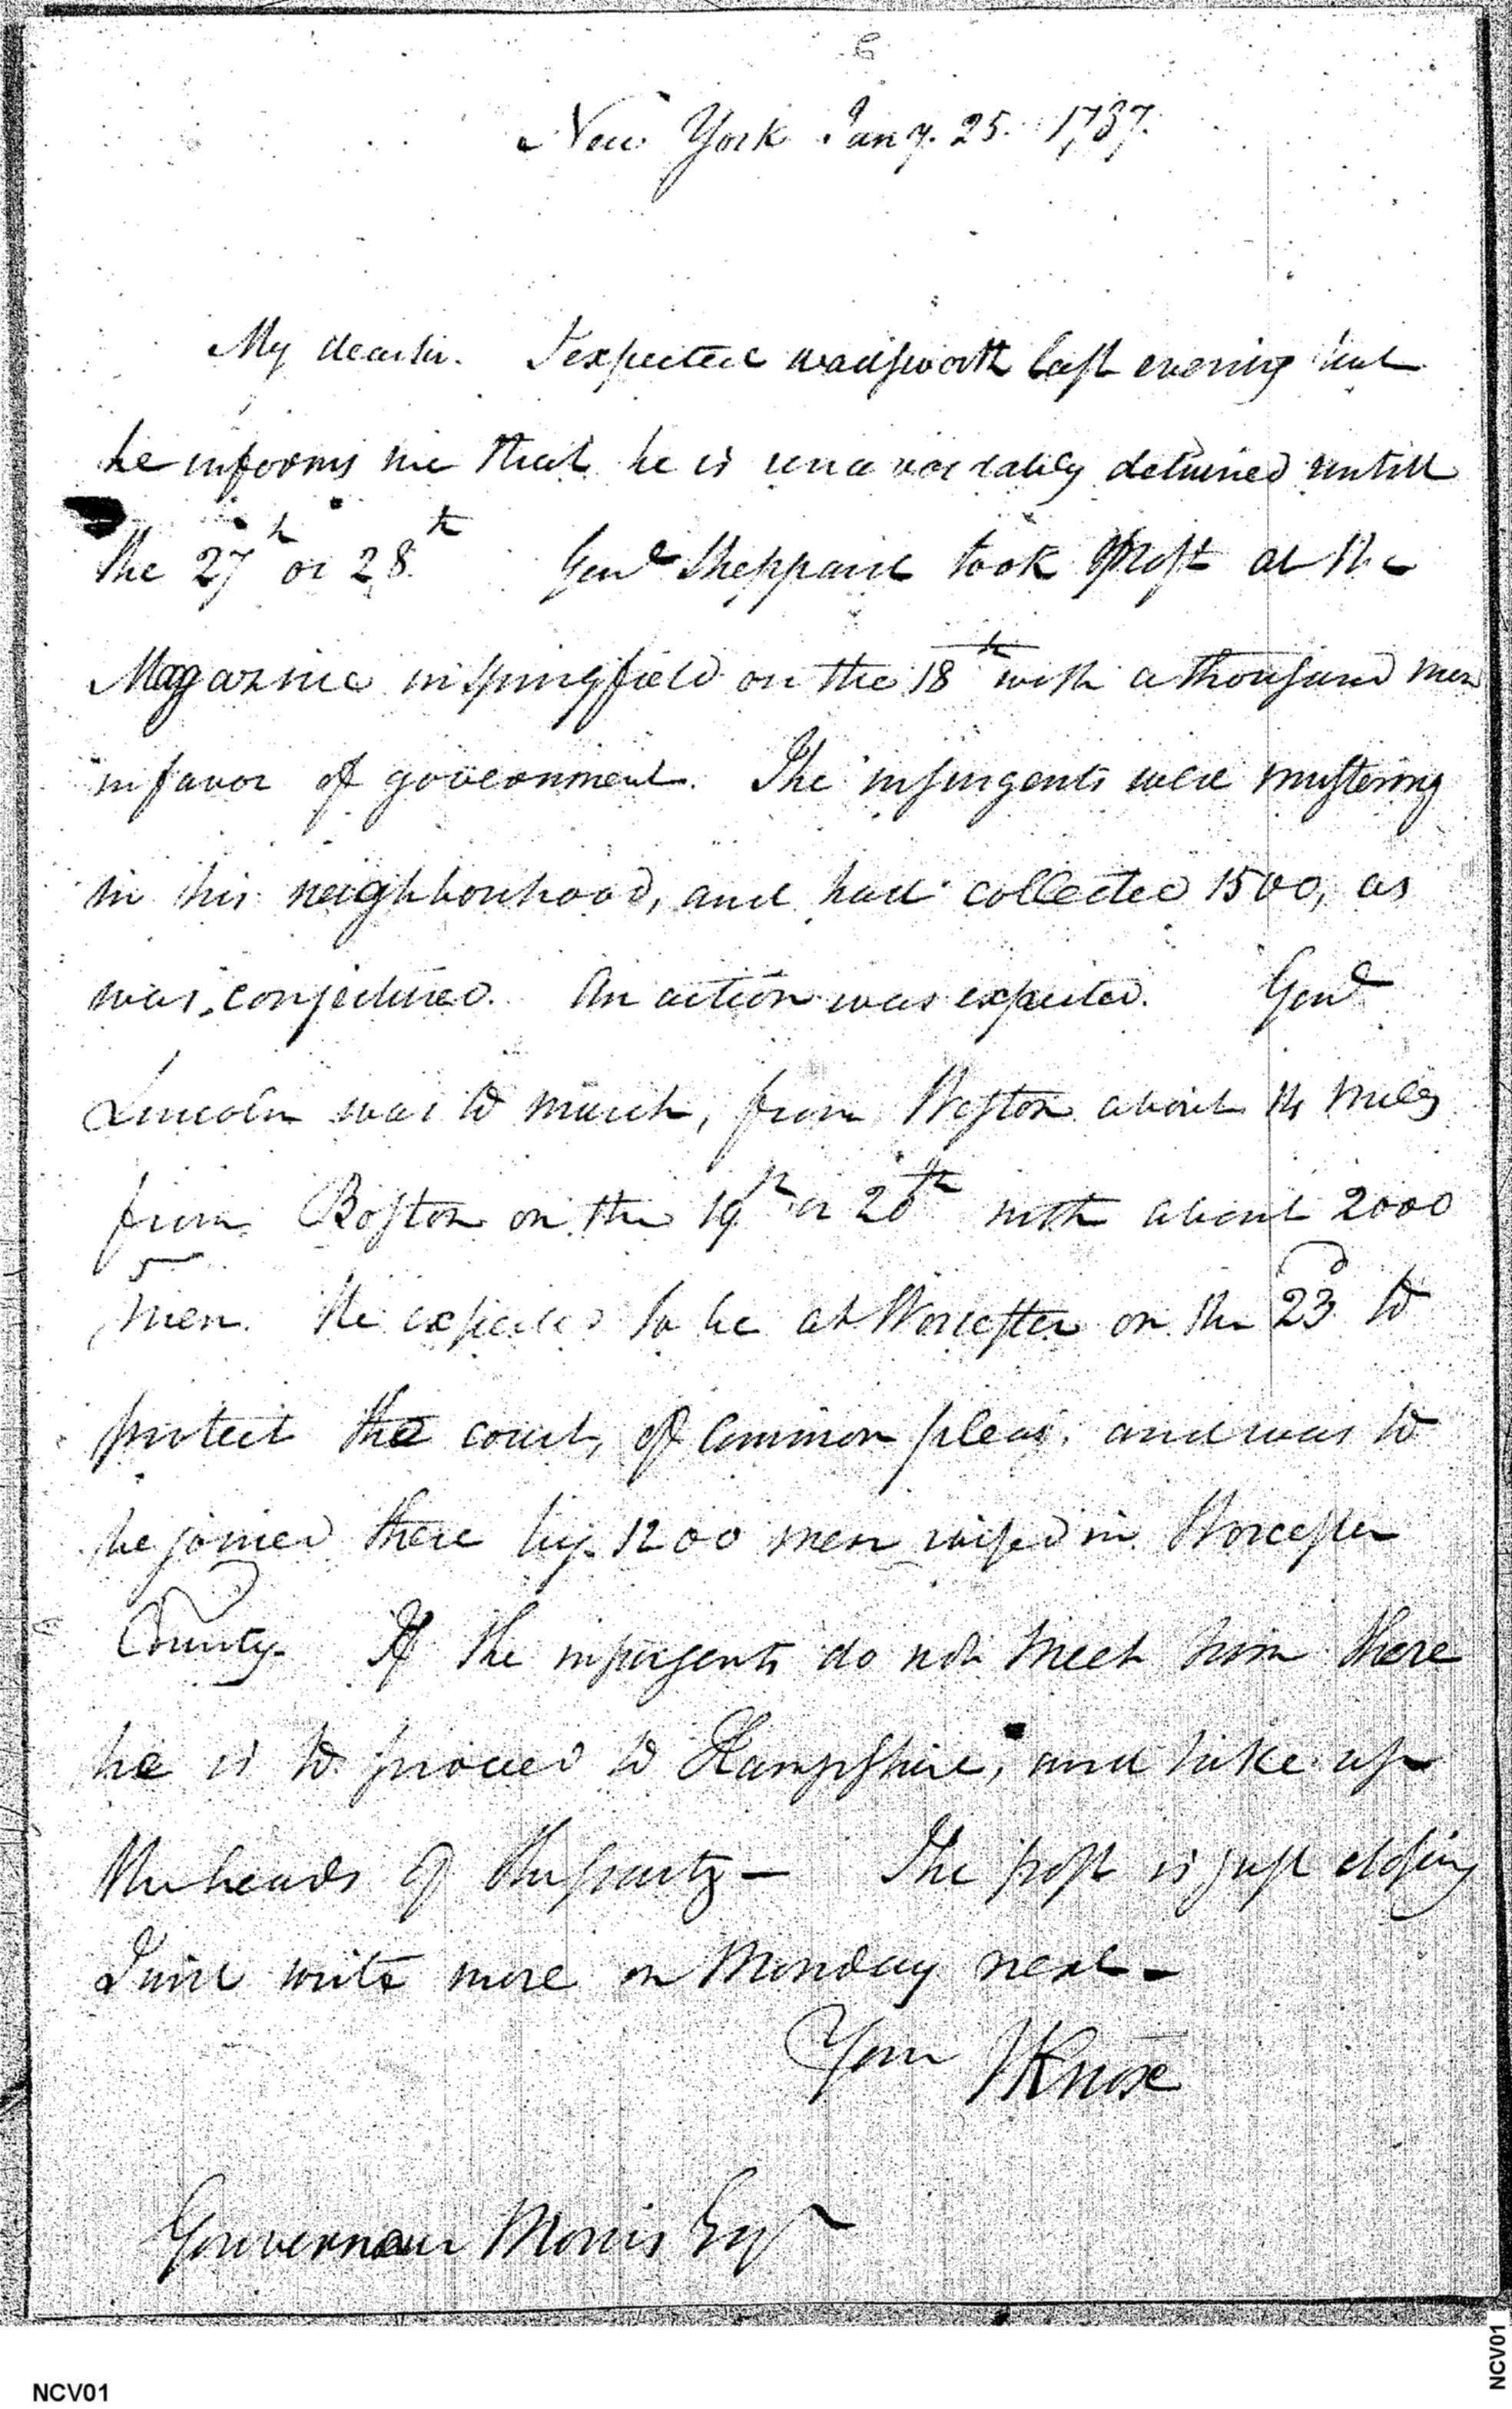 New York Jany. 25. 1787.
My dearsir. I expected wadsworth last evening but
he informs me that he is unavoidably detained untill
the 27th or 28th Genl Sheppard took post at the
Magazine in springfield on the 18th with a thousand men
in favor of government. The insurgents were mustering
in his neighbourhood, and had collected 1500, as
was conjectured. An action was expected. Genl
Lincoln was to march, from Weston about 14 miles
from Boston on the 19th or 20th with about 2000
men. He expected to be at Worcester on the 23d to
protect the court, of Common pleas, and was to
be joined there by 1200 men raised in Worcester
County. If the insurgents do not meet him there
he is to proceed to Hampshire, and take up
the heads of the party— The post is just closing
I will write more on Monday next—
Your HKnox
Gouverneur Morris Esqr
NCV01
NCV01